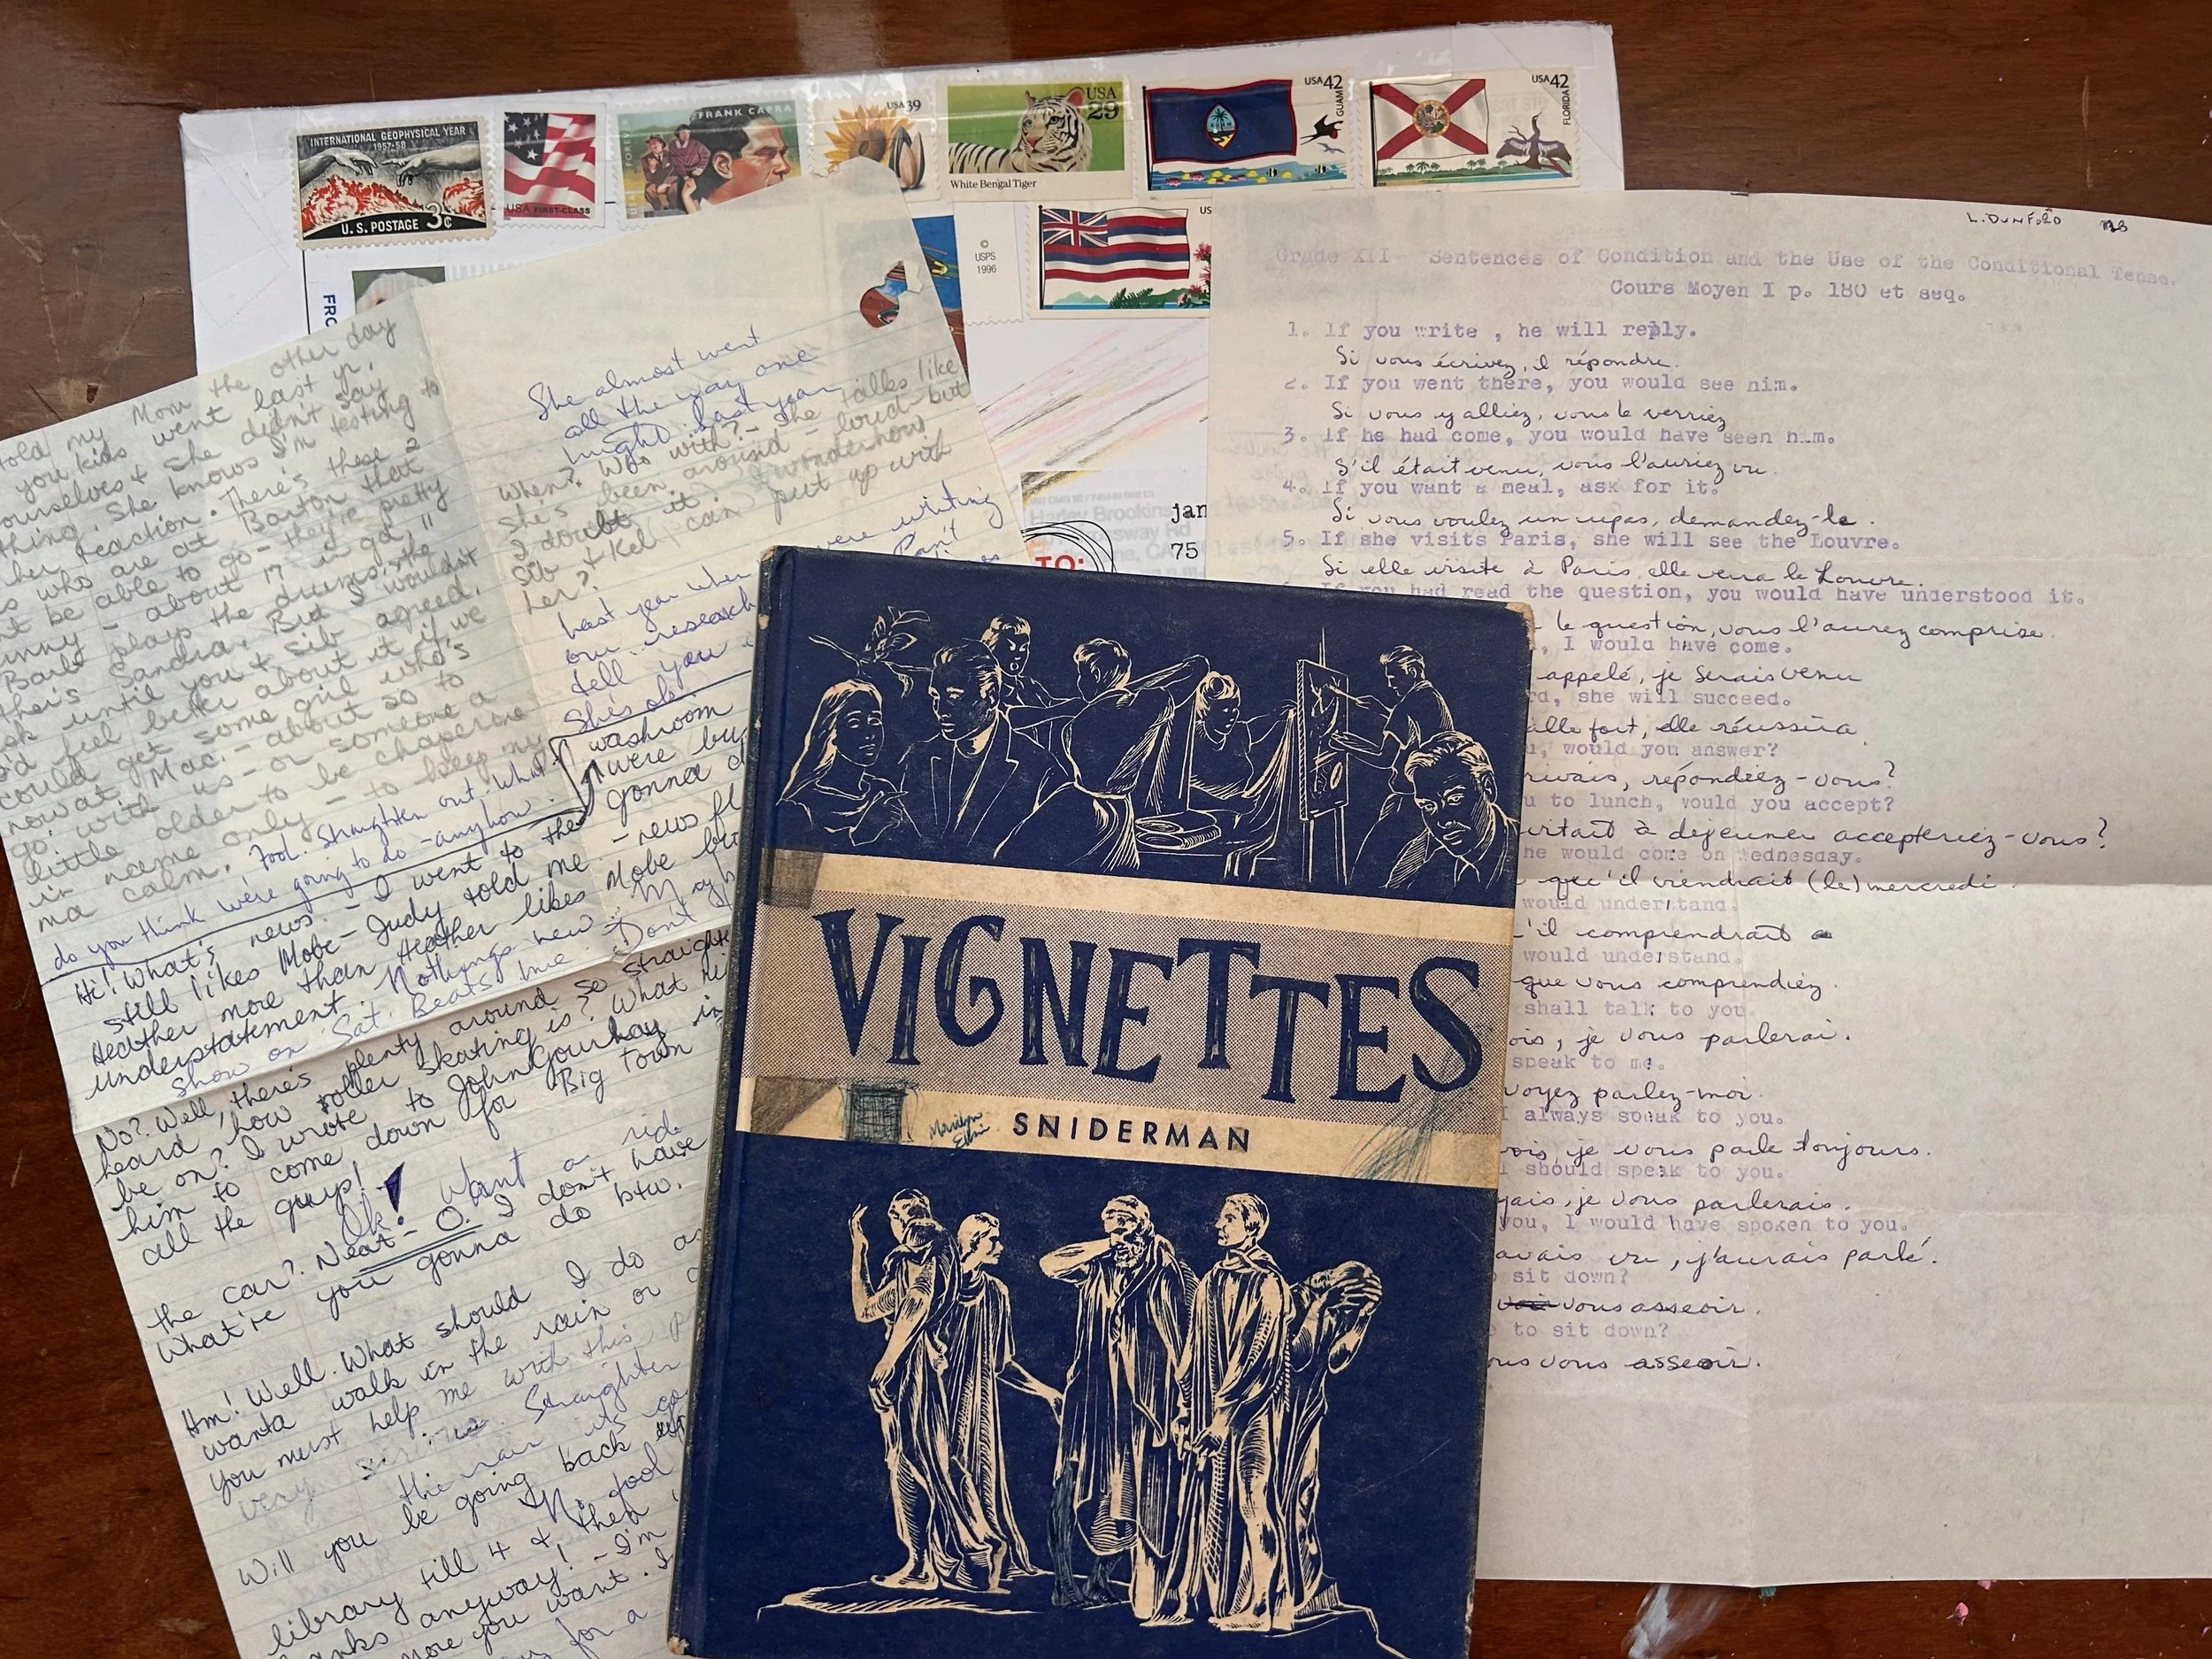 INTERNATIONAL GEOPHYSICAL YEAR
1957-58
U.S. POSTAGE 3¢
USA FIRST-CLASS
FRANK CAPRA
USA 39
USA
29
White Bengal Tiger
USA 42
GUAM
USA 42
FLORIDA
©
USPS
1996
US
FRO
jan
75
TO:
Harley Brookins
told my Mom the other day
you kids went last yr.
ourselves & she didn't say
thing. She knows I'm testing to
her reaction. There's these 2
s who are at Barton that
t be able to go - they're pretty
unny - about 17 in ga 11
Barb plays the drums, the
ther's Sandra. But I wouldn't
sk until you & Sib agreed.
I'd feel better about it if we
could get some girl who's
now at Mac. - about 20 to
go with us - or someone a
little older to be chaperone
in name only - to keep my
ma calm.
Fool. Straighten out. What
do you think we're going to do - anyhow.
Hi! What's news. - I went to the
washroom
were bu
gonna d
still likes Mobe - Judy told me. - news fl
Heather more than Heather likes Mobe bu
understatement. Nothings new. - May b
Show on Sat. Beats me. Don't
No? Well, there's plenty around so straight
heard how roller skating is? What
be on? I wrote to John Gourlay in
him to come down for Big Town
all the guys!
Ok! Want a ride
the car? Neat - O. I don't have
What're you gonna do btw.
Hm! Well. What should I do as
wanta walk in the rain or
You must help me with this p
very Straighten
the rain its
Will you be going back
library till 4 & then
anks anyway! - I'm
more you want. I
for a
She almost went
all the way one
night last year
When? Who with? - She talks like
She's been around - loud - but
I doubt it. I wonder how
Sib & Kel can put up with
her?
Last year when were writing
our research Can't
tell you
She's ok
VIGNETTES
Marilyn
SNIDERMAN
L. DUNFORD
Grade XII Sentences of Condition and the Use of the Conditional Tense.
Cours Moyen I p. 180 et seq.
1. If you write , he will reply.
Si vous écrivez, il répondre.
2. If you went there, you would see him.
Si vous y alliez, vous le verriez
3. If he had come, you would have seen him.
S'il était venu, vous l'auriez vu.
4. If you want a meal, ask for it.
Si vous voulez un repas, demandez-le.
5. If she visits Paris, she will see the Louvre.
Si elle visite à Paris, elle verra le Louvre.
If you had read the question, you would have understood it.
la question, vous l'aurez comprise.
, I would have come.
appelé, je serais venu
rd, she will succeed.
aille fort, elle réussira.
u, would you answer?
rivais, répondiez-vous?
u to lunch, would you accept?
vitait à dejeuner accepteriez-vous?
he would come on Wednesday.
qu'il viendrait (le) mercredi.
would understand.
'il comprendrait
would understand.
que vous comprendiez.
shall talk to you.
ois, je vous parlerai.
speak to me.
voyez parlez-moi.
I always speak to you.
vois, je vous parle toujours.
I should speak to you.
yais, je vous parlerais.
you, I would have spoken to you.
avais vu, j'aurais parlé.
sit down?
vous asseoir.
e to sit down?
ous vous asseoir.